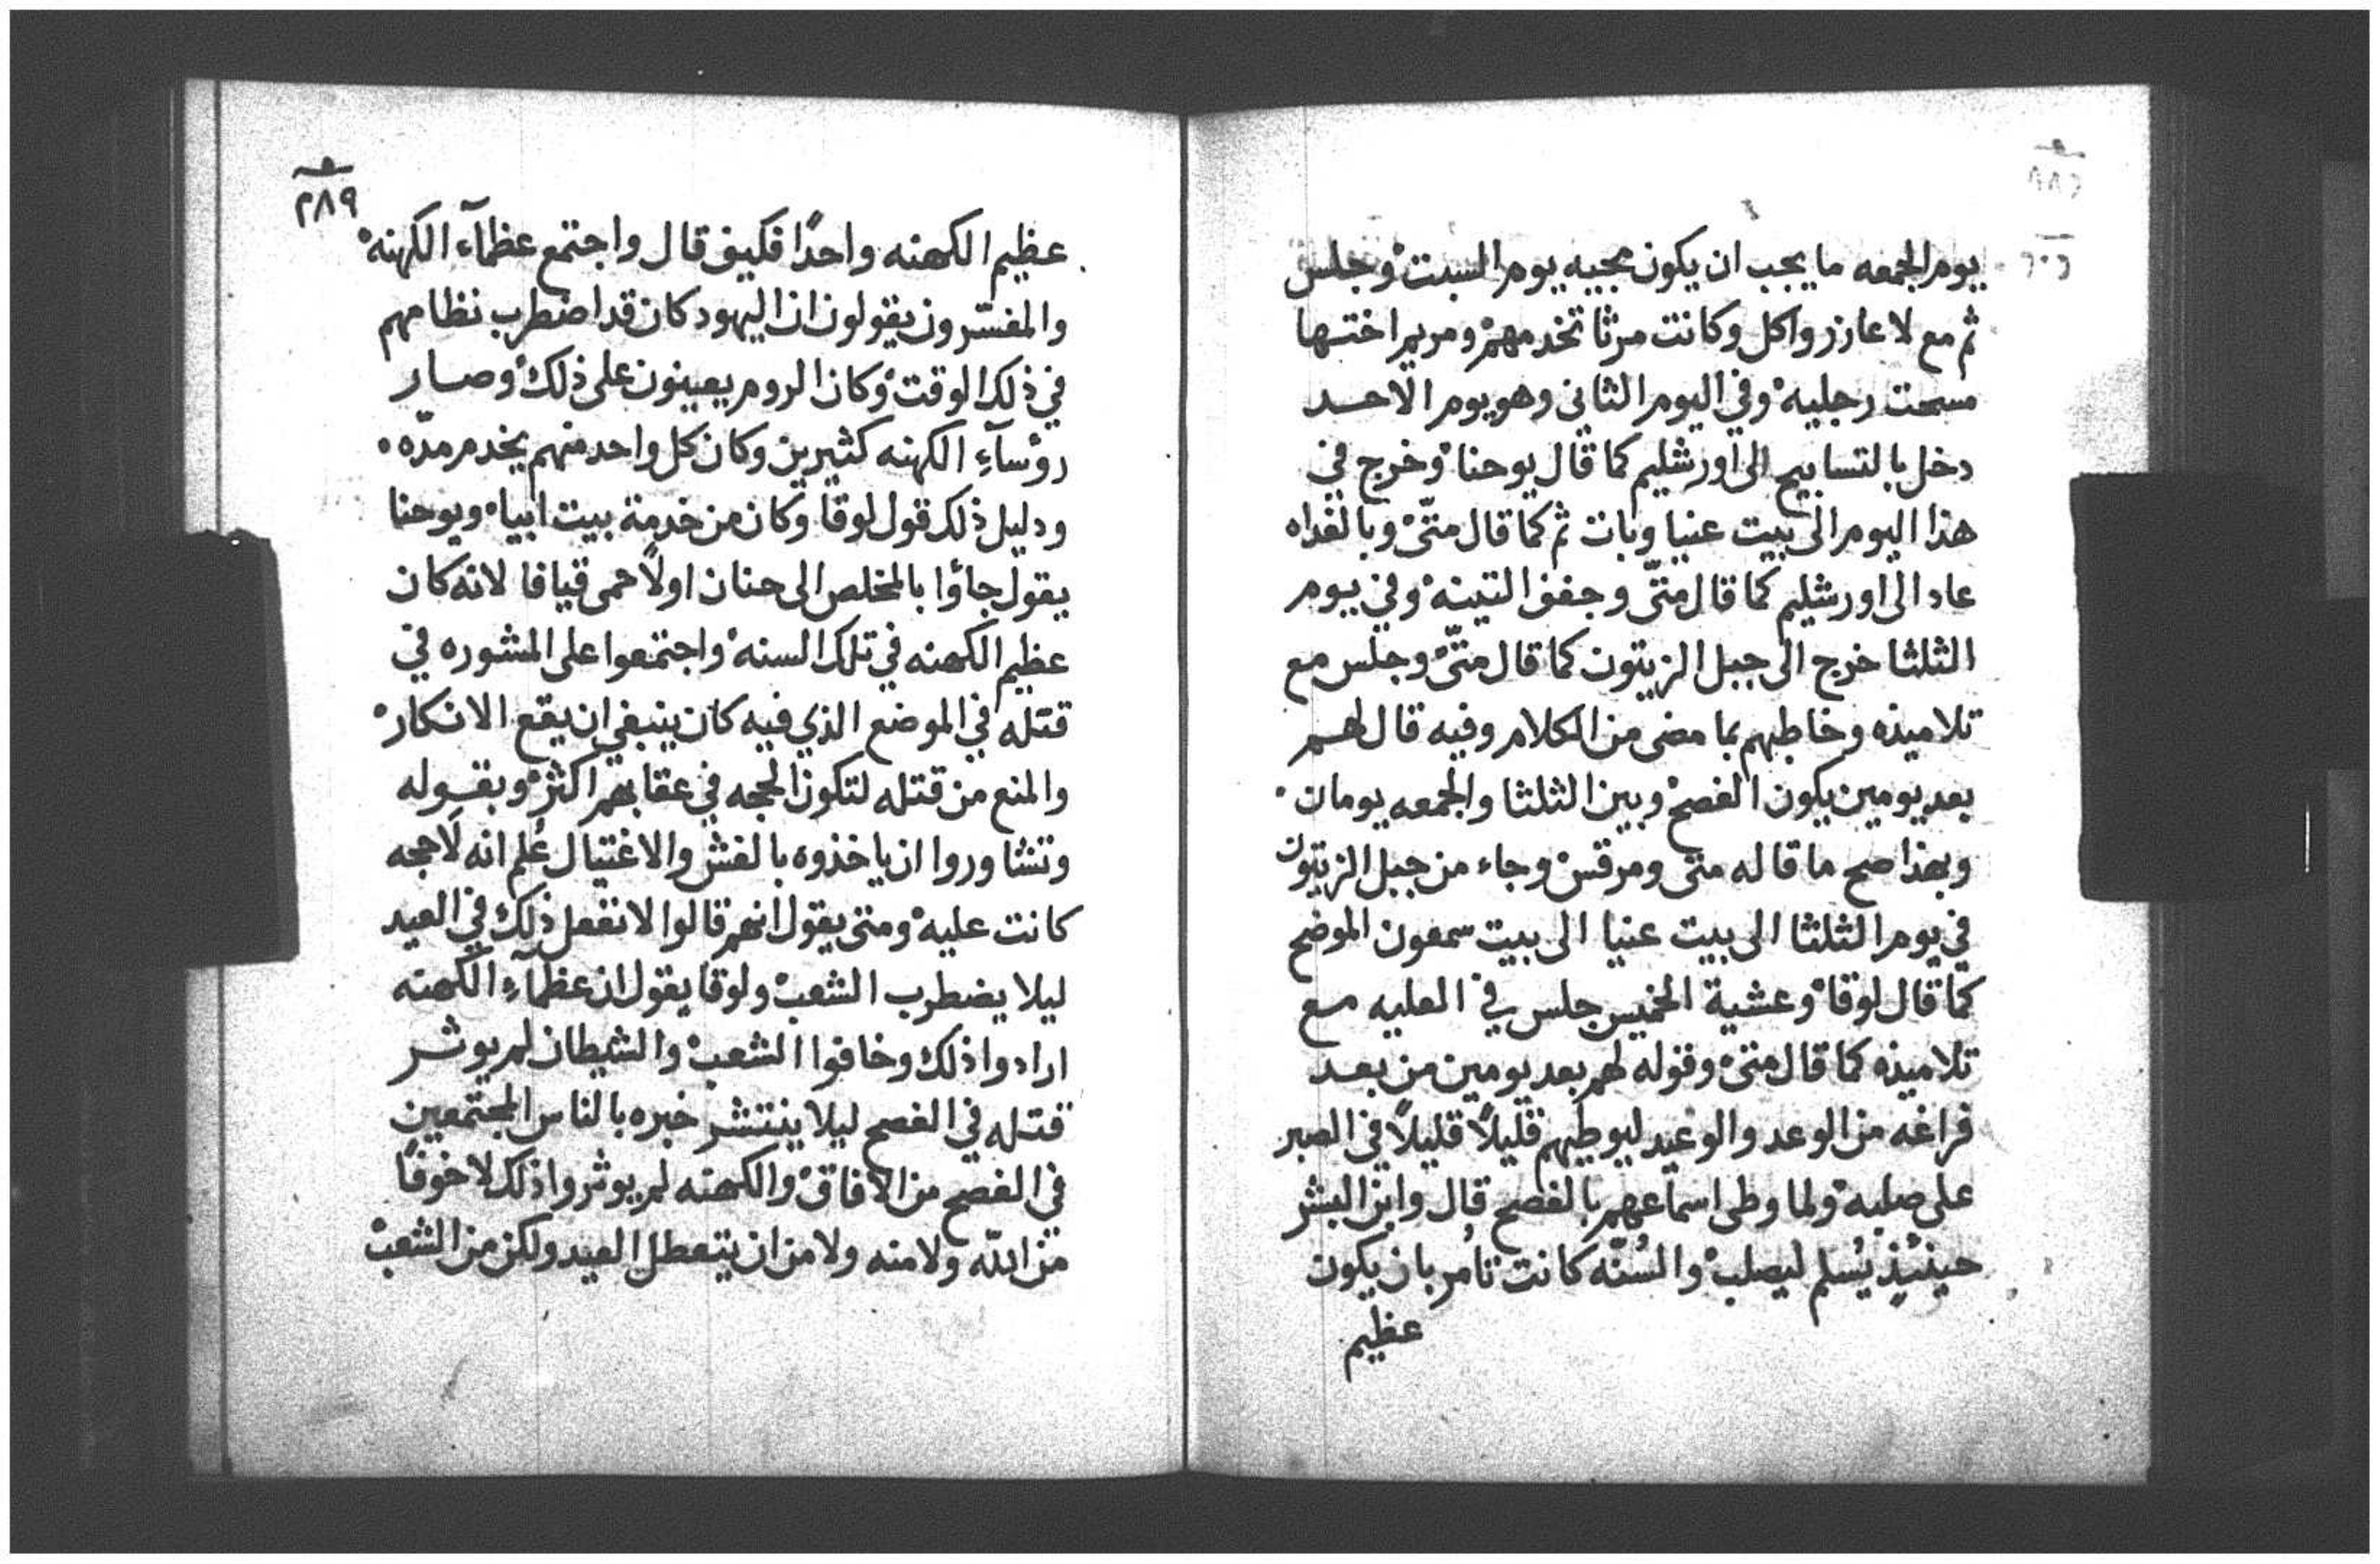 يوم الجمعه ما يجب ان يكون مجيبه يوم السبت وجلس
ثم مع لاعازر واكل وكانت مرثا تخدمهم ومريم اختها
مسحت رجليه وفي اليوم الثاني وهو يوم الاحد
دخل بالتسابيح الى اورشليم كما قال يوحنا وخرج في
هذا اليوم الى بيت عنيا وبات ثم كما قال متّى وبالغداه
عاد الى اورشليم كما قال متّى وجفف التينه وفي يوم
الثلثا خرج الى جبل الزيتون كما قال متّى وجلس مع
تلاميذه وخاطبهم بما مضى من الكلام وفيه قال لهم
بعد يومين يكون الفصح وبين الثلثا والجمعه يومان
وبهذا صح ما قاله متى ومرقس وجاء من جبل الزيتون
في يوم الثلثا الى بيت عنيا الى بيت سمعون الموضح
كما قال لوقا وعشية الخميس جلس في العليه مع
تلاميذه كما قال متى وقوله لهم بعد يومين من بعد
فراغه من الوعد والوعيد ليوطيهم قليلاً قليلاً في الصبر
على صلبه ولما وطى اسماعهم بالفصح قال وابن البشر
حينئذٍ يُسلم ليصلب والسُنّه كانت تامر بان يكون
عظيم
٢٨٩
عظيم الكهنه واحدًا فكيف قال واجتمع عظمآء الكهنه
والمفسّرون يقولون ان اليهود كان قد اضطرب نظامهم
في ذلك الوقت وكان الروم يعينون على ذلك وصار
روُسآءِ الكهنه كثيرين وكان كل واحد منهم يخدم مدّه
ودليل ذلك قول لوقا وكان من خدمة بيت ابيا ويوحنا
يقول جاؤا بالمخلص الى حنان اولاً حمى قيافا لانه كان
عظيم الكهنه في تلك السنه واجتمعوا على المشوره في
قتله في الموضع الذي فيه كان ينبغي ان يقع الانكار
والمنع من قتله لتكون الحجه في عقابهم اكثر وبقوله
وتشاوروا ان ياخذوه بالغش والاغتيال عُلم انه لَا حجه
كانت عليه ومتى يقول انهم قالوا لا نفعل ذلك في العيد
ليلا يضطرب الشعب ولوقا يقول ان عظمآءِ الكهنه
ارادوا ذلك وخافوا الشعب والشيطان لم يوثر
قتله في الفصح ليلا ينتشر خبره بالناس المجتمعين
في الفصح من الافاق والكهنه لم يوثروا ذلك لا خوفًا
من الله ولا منه ولا من ان يتعطل العيد ولكن من الشعب